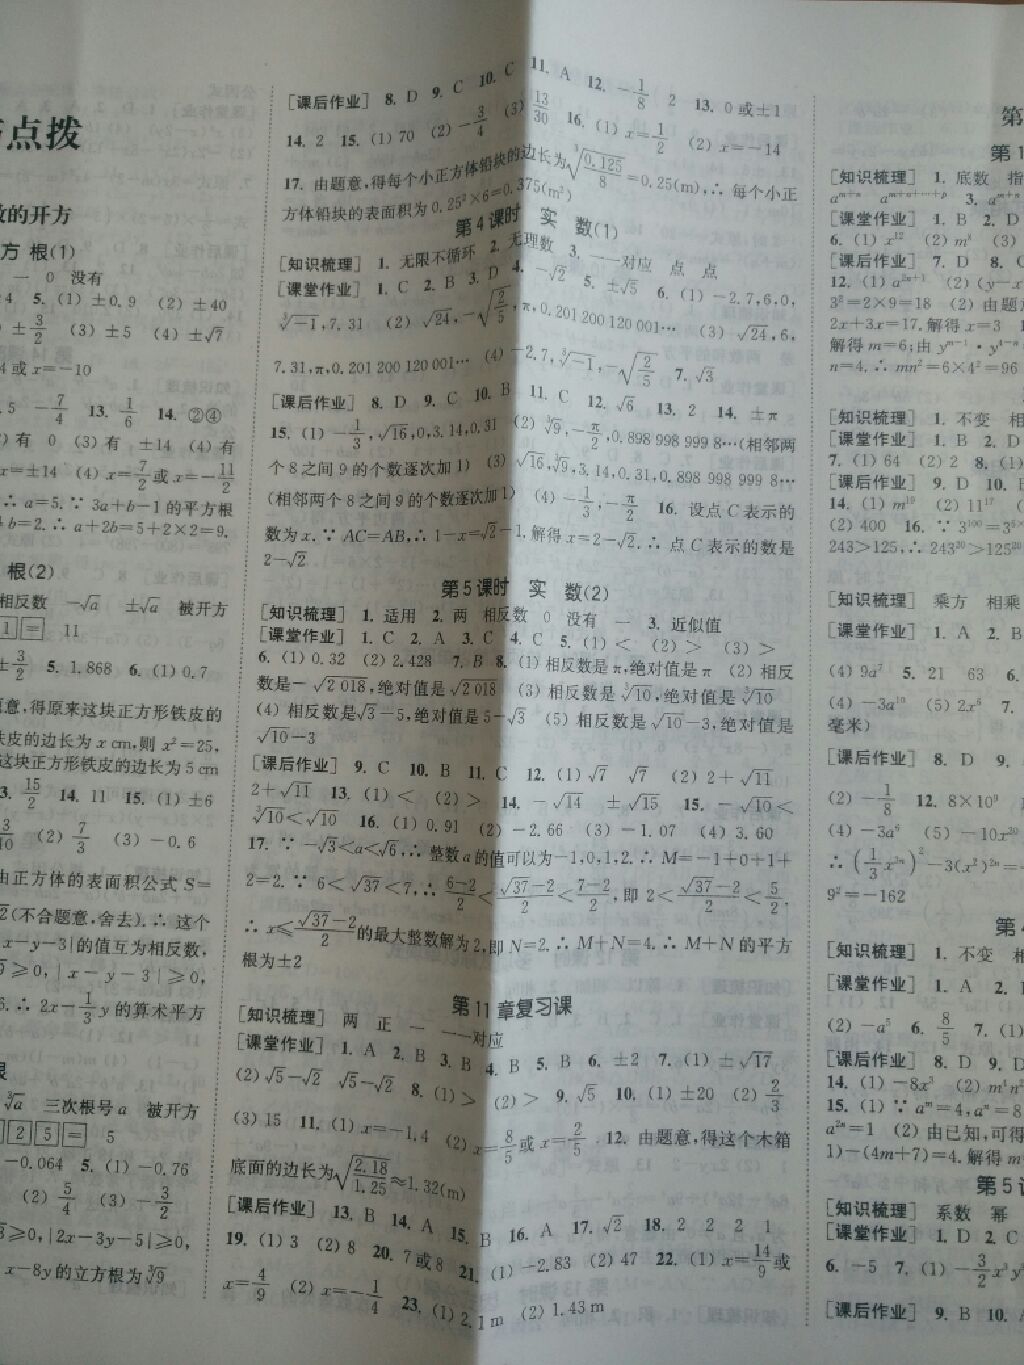 点拨
数的开方
方 根(1)
一 0 没有
4 5. (1) ±0.9 (2) ±40
±3/2 (3) ±5 (4) ±√7
4或x=-10
5 -7/4 13. 1/6 14. ②④
)有 0 (3)有 ±14 (4)有
x=±14 (4) x=7/2或x=-11/2
∴ a=5. ∵ 3a+b-1的平方根
b=2. ∴ a+2b=5+2×2=9.
根(2)
相反数 -√a ±√a 被开方
1 = 11
±3/2 5. 1.868 6. (1) 0.7
意,得原来这块正方形铁皮的
铁皮的边长为x cm,则x²=25,
这块正方形铁皮的边长为5 cm
3. 15/2 14. 11 15. (1) ±6
3/10 (2) 7/3 (3) -0.6
由正方体的表面积公式S=
2(不合题意,舍去). ∴ 这个
x-y-3|的值互为相反数,
≥0,|x-y-3|≥0,
6. ∴ 2x-1/3y的算术平方
根
∛a 三次根号a 被开方
2 5 = 5
-0.064 5. (1) -0.76
(2) 5/4 (3) -3/2
≥0,|2x-3y-5|≥0,
x-8y的立方根为∛9
[课后作业] 8. D 9. C 10. C 11. A 12. -1/8 2 13. 0或±1
14. 2 15. (1) 70 (2) -3/4 (3) 13/30 16. (1) x=1/2 (2) x=-14
17. 由题意,得每个小正方体铅块的边长为∛(0.125/8)=0.25(m),∴ 每个小正
方体铅块的表面积为0.25²×6=0.375(m²)
第4课时 实 数(1)
[知识梳理] 1. 无限不循环 2. 无理数 3. 一一对应 点 点
[课堂作业] 1. C 2. B 3. D 4. -√2 5. ±√5 6. (1) -2.7,6.0,
∛-1,7.31 (2) √24,-√(2/5),π,0.201 200 120 001… (3) √24,6,
7.31,π,0.201 200 120 001… (4) -2.7,∛-1,-√(2/5) 7. √3
[课后作业] 8. D 9. C 10. B 11. C 12. √6 13. 2 14. ±π
15. (1) -1/3,√16,0,3.14,0.31 (2) ∛9,-π/2,0.898 998 999 8…(相邻两
个8之间9的个数逐次加1) (3) √16,∛9,3.14,0.31,0.898 998 999 8…
(相邻两个8之间9的个数逐次加1) (4) -1/3,-π/2 16. 设点C表示的
数为x. ∵ AC=AB,∴ 1-x=√2-1.解得x=2-√2. ∴ 点C表示的数是
2-√2
第5课时 实 数(2)
[知识梳理] 1. 适用 2. 两 相反数 0 没有 一 3. 近似值
[课堂作业] 1. C 2. A 3. C 4. C 5. (1) < (2) > (3) >
6. (1) 0.32 (2) 2.428 7. B 8. (1) 相反数是π,绝对值是π (2) 相反
数是-√2 018,绝对值是√2 018 (3) 相反数是∛10,绝对值是∛10
(4) 相反数是√3-5,绝对值是5-√3 (5) 相反数是√10-3,绝对值是
√10-3
[课后作业] 9. C 10. B 11. C 12. (1) √7 √7 (2) 2+√11
2+√11 13. (1) < (2) > 14. -√14 ±√15 15. -√10<
∛10<√10 16. (1) 0.91 (2) -2.66 (3) -1.07 (4) 3.60
17. ∵ -√3<a<√6,∴ 整数a的值可以为-1,0,1,2. ∴ M=-1+0+1+
2=2. ∵ 6<√37<7,∴ (6-2)/2<(√37-2)/2<(7-2)/2,即2<(√37-2)/2<5/2.
∴ x≤(√37-2)/2的最大整数解为2,即N=2. ∴ M+N=4. ∴ M+N的平方
根为±2
第11章复习课
[知识梳理] 两 正 一 一一对应
[课堂作业] 1. A 2. B 3. B 4. B 5. B 6. ±2 7. (1) ±√17
(2) √5-√2 √5-√2 8. (1) > (2) > 9. √5 10. (1) ±20 (2) 2/3
(3) 15 11. (1) x=-1.4 (2) x=8/5或x=2/5 12. 由题意,得这个木箱
底面的边长为√(2.18/1.25)≈1.32(m)
[课后作业] 13. B 14. A 15. B 16. A 17. √2 18. 2 2 2 1
19. (1) 3 (2) 8 20. 7或8 21. (1) -2.83 (2) 47 22. (1) x=14/9或
x=4/9 (2) x=-1/4 23. (1) 2.1 m (2) 1.43 m
第
第1
[知识梳理] 1. 底数 指
3.
[课堂作业] 1. B 2. D
6. (1) x¹² (2) m⁸ (3)
[课后作业] 7. D 8. C
12. (1) a²ⁿ⁺¹ (2) (y-x
3²=2×9=18 (2) 由题
2x+3x=17.解得x=3
解得m=6;由
n=4. ∴ mn²=6×4²=96
[知识梳理] 1. 不变 相
[课堂作业] 1. B 2. D
7. (1) 64 (2) 2 8. (1)
[课后作业] 9. D 10. B
14. (1) m¹⁹ (2) 11¹⁷ (
(2) 400 16. ∵ 3¹⁰⁰=3⁵ˣ
243>125,∴ 243²⁰>125²⁰
[知识梳理] 乘方 相乘
[课堂作业] 1. A 2. B
(4) 9a⁷ 5. 21 63 6.
(4) -3a¹⁰ (5) 2x⁶ 7.
毫米)
[课后作业] 8. D 9.
(2) -1/8 12. 8×10⁹
(4) -3a⁶ (5) -10x³⁰
∴ (1/3x³ⁿ)²-3(x²)²ⁿ=
9²=-162
第4
[知识梳理] 1. 不变 相
[课堂作业] 1. A 2.
(2) -a⁵ 6. 8/5 7. (1)
[课后作业] 8. D 9. D
14. (1) -8x³ (2)
15. (1) ∵ aᵐ=4,aⁿ=8
=1 (2) 由已知,可得
1)-(4m+7)=4.解得m
第5课
[知识梳理] 系数 幂
[课堂作业] 1. D 2. C
6. -5 7. (1) -3/2x³y³
[课后作业] 9. B 10.